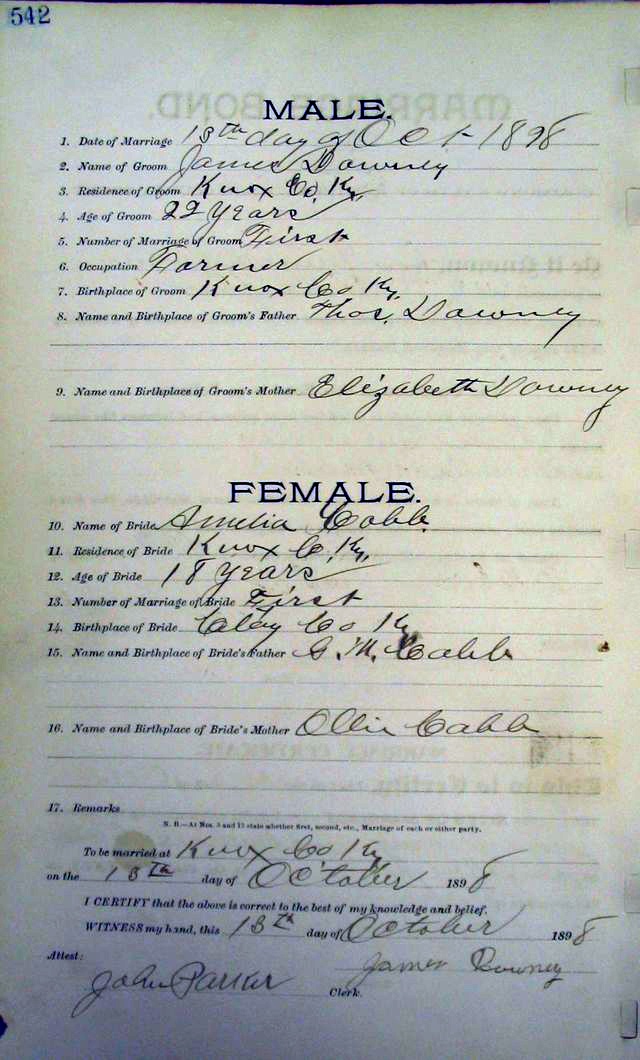 542
MALE.
1. Date of Marriage 13th day of Oct 1898
2. Name of Groom James Downey
3. Residence of Groom Knox Co, Ky,
4. Age of Groom 22 years
5. Number of Marriage of Groom First
6. Occupation Farmer
7. Birthplace of Groom Knox Co Ky,
8. Name and Birthplace of Groom's Father Thos. Downey
9. Name and Birthplace of Groom's Mother Elizabeth Downey
FEMALE.
10. Name of Bride Amelia Cobb
11. Residence of Bride Knox C, Ky,
12. Age of Bride 18 years
13. Number of Marriage of Bride First
14. Birthplace of Bride Clay Co Ky
15. Name and Birthplace of Bride's Father G. M. Cobb
16. Name and Birthplace of Bride's Mother Ollie Cobb
17. Remarks
N. B.—At Nos. 5 and 13 state whether first, second, etc., Marriage of each or either party.
To be married at Knox Co Ky
on the 13th day of October 1898
I CERTIFY that the above is correct to the best of my knowledge and belief.
WITNESS my hand, this 13th day of October 1898
Attest: James Downey
John Parker Clerk.